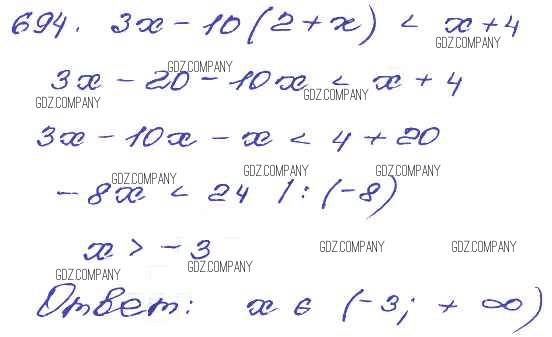 694. 3x - 10(2+x) < x+4
GDZ.COMPANY
GDZ.COMPANY
3x - 20 - 10x < x + 4
GDZ.COMPANY
GDZ.COMPANY
3x - 10x - x < 4 + 20
GDZ.COMPANY
GDZ.COMPANY
GDZ.COMPANY
-8x < 24 |:(-8)
x > -3
GDZ.COMPANY
GDZ.COMPANY
GDZ.COMPANY
GDZ.COMPANY
Ответ: x ∈ (-3; +∞)